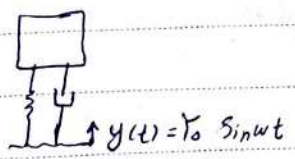 y(t) = Y₀ Sinωt